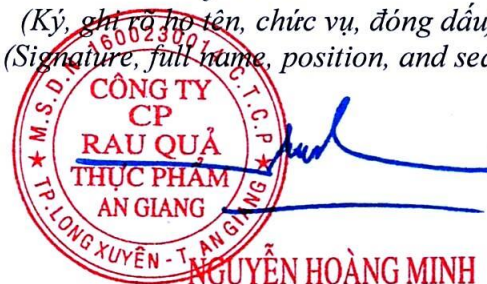 (Ký, ghi rõ họ tên, chức vụ, đóng dấu
(Signature, full name, position, and sea
M.S.D.N: 1600230014-C.T.C.P
CÔNG TY
CP
RAU QUẢ
THỰC PHẨM
AN GIANG
TP.LONG XUYÊN - T.AN GIANG
NGUYỄN HOÀNG MINH